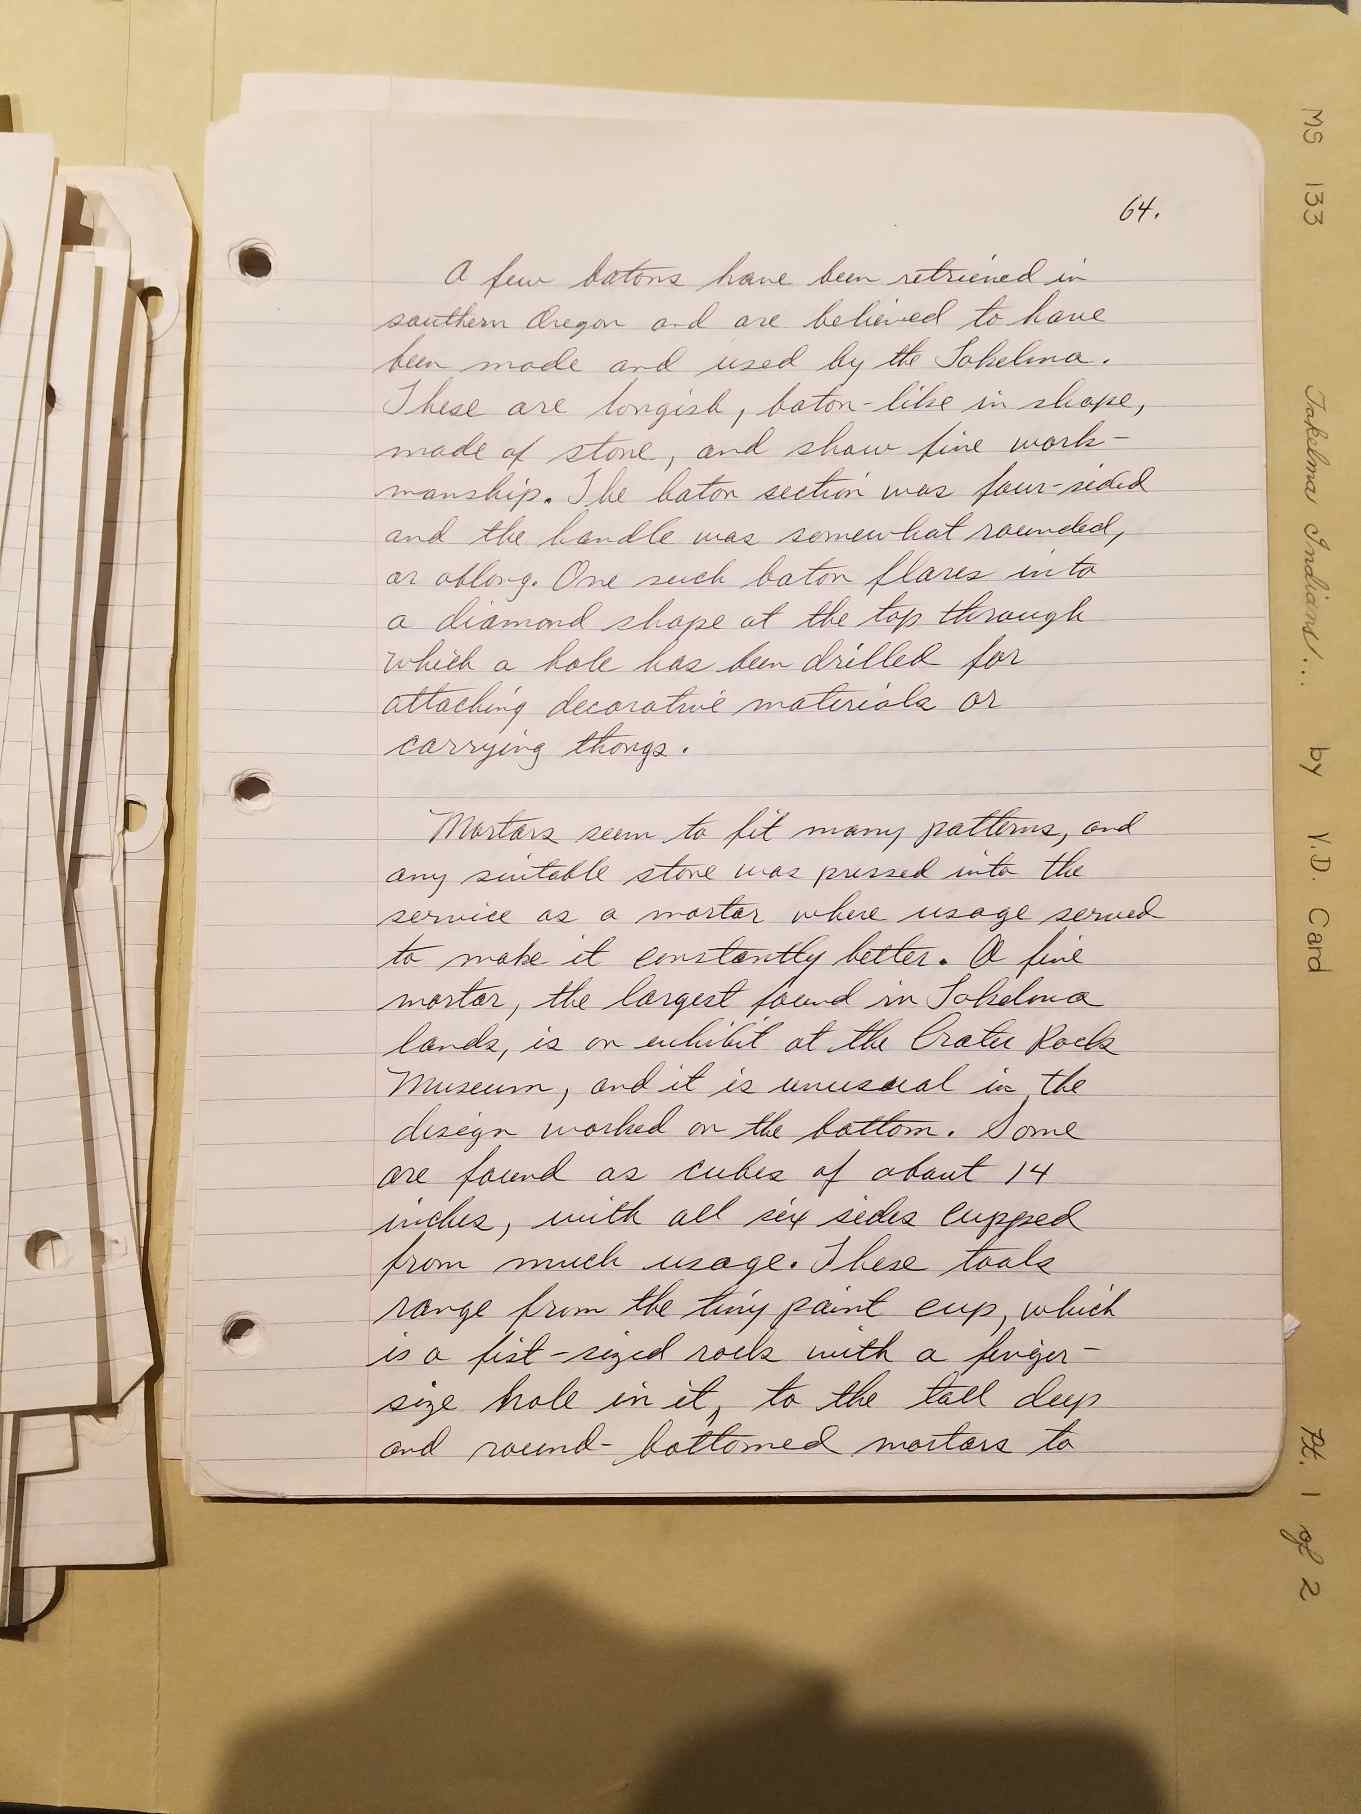 64.
A few batons have been retrieved in
southern Oregon and are believed to have
been made and used by the Takelma.
These are longish, baton-like in shape,
made of stone, and show fine work-
manship. The baton section was four-sided
and the handle was somewhat rounded,
or oblong. One such baton flares into
a diamond shape at the top through
which a hole has been drilled for
attaching decorative materials or
carrying thongs.
Mortars seem to fit many patterns, and
any suitable stone was pressed into the
service as a mortar where usage served
to make it constantly better. A fine
mortar, the largest found in Takelma
lands, is on exhibit at the Crater Rock
Museum, and it is unusual in the
design worked on the bottom. Some
are found as cubes of about 14
inches, with all six sides cupped
from much usage. These tools
range from the tiny paint cup, which
is a fist-sized rock with a finger-
size hole in it, to the tall deep
and round-bottomed mortars to
MS 133 Takelma Indians... by V.D. Card Pt. 1 of 2